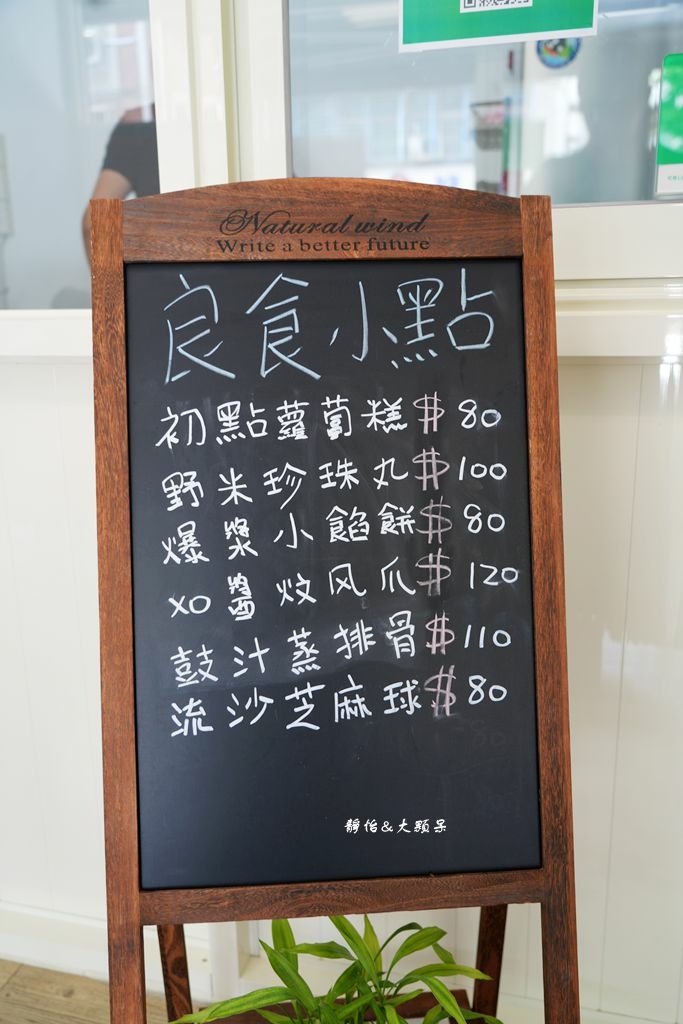 Natural wind
Write a better future
良食小點
初點蘿蔔糕$80
野米珍珠丸$100
爆漿小餡餅$80
XO醬炆风爪$120
鼓汁蒸排骨$110
流沙芝麻球$80
靜怡&大顆呆